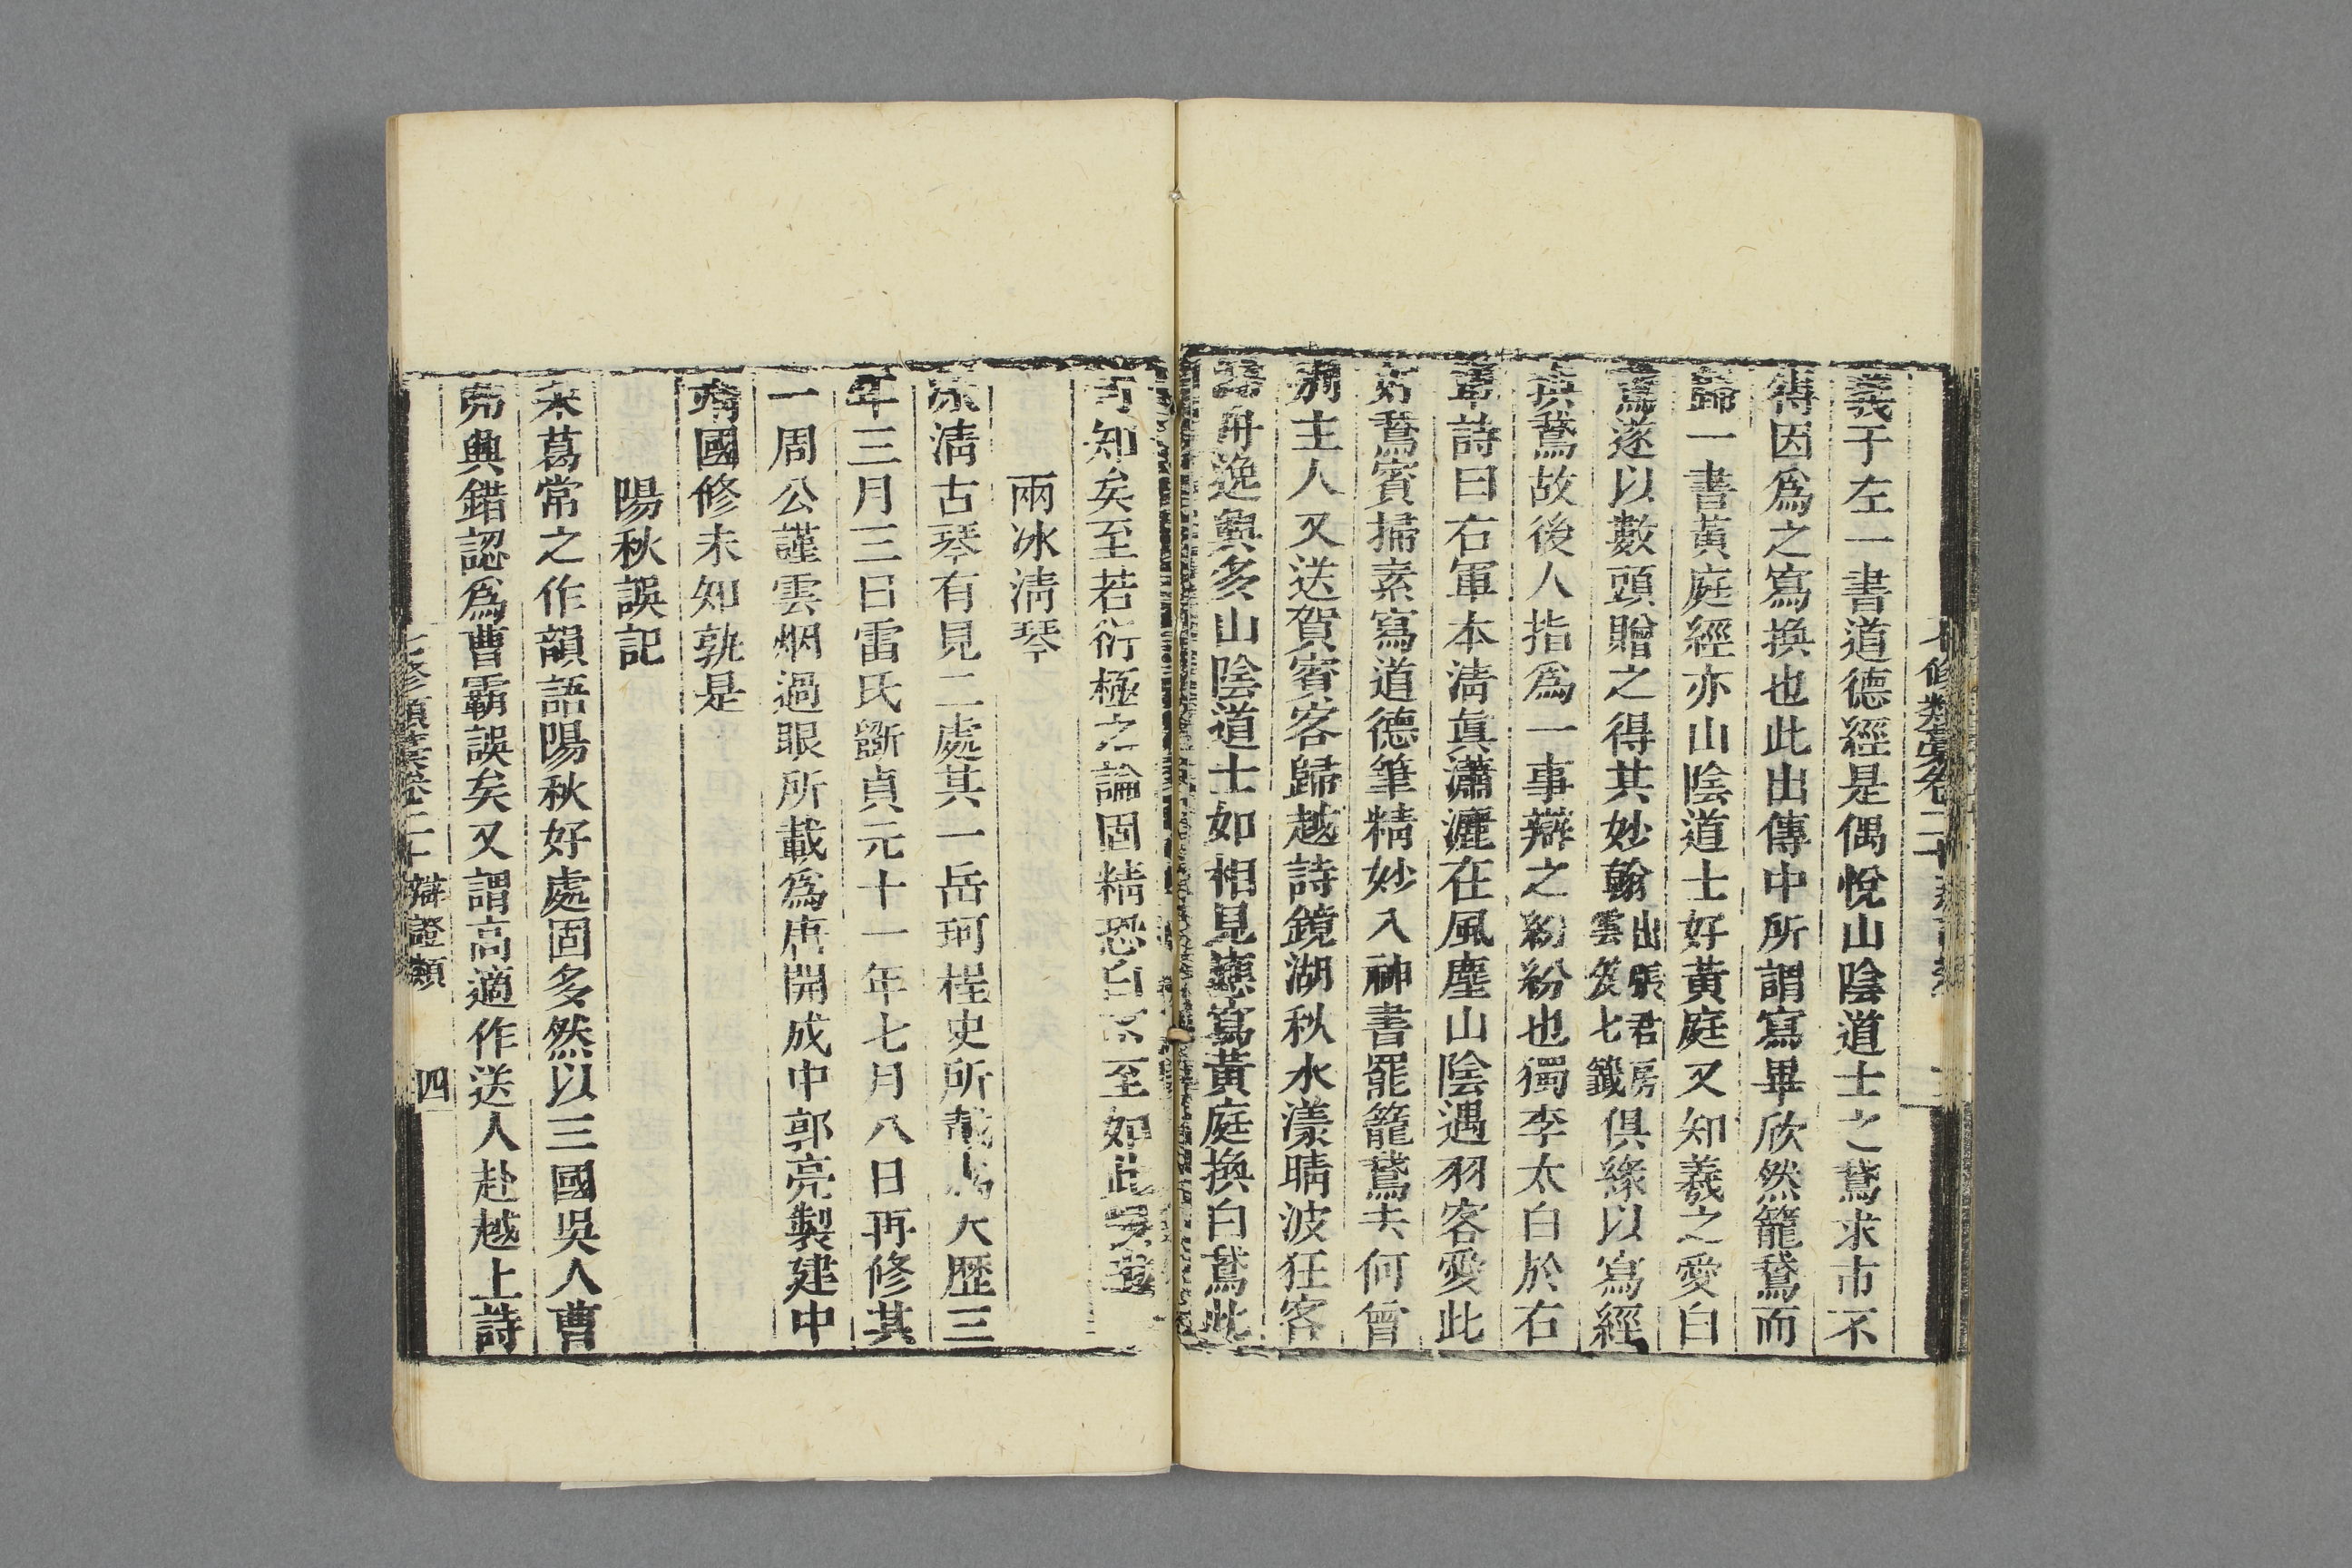 七修類藁卷二十
義于左一書道德經是偶悅山陰道士之鵞求市不
得因爲之寫換也此出傳中所謂寫畢欣然籠鵞而
歸一書黃庭經亦山陰道士好黃庭又知羲之愛白
鵞遂以數頭贈之得其妙翰出張君房雲笈七籤俱緣以寫經
換鵞故後人指爲一事辯之紛紛也獨李太白於右
軍詩曰右軍本淸眞瀟灑在風塵山陰遇羽客愛此
好鵞賓掃素寫道德筆精妙入神書罷籠鵞去何曾
別主人又送賀賓客歸越詩鏡湖秋水漾晴波狂客
舟逸興多山陰道士如相見應寫黃庭換白鵞此
可知矣至若衍極之論固精恐白亦至如此
兩冰淸琴
冰淸古琴有見二處其一岳珂桯史所載爲大歷三
年三月三日雷氏斲貞元十一年七月八日再修其
一周公謹雲烟過眼所載爲唐開成中郭亮製建中
靖國修未知孰是
陽秋誤記
宋葛常之作韻語陽秋好處固多然以三國吳人曹
弗興錯認爲曹霸誤矣又謂高適作送人赴越上詩
七修類藁卷二十 辯證類 四